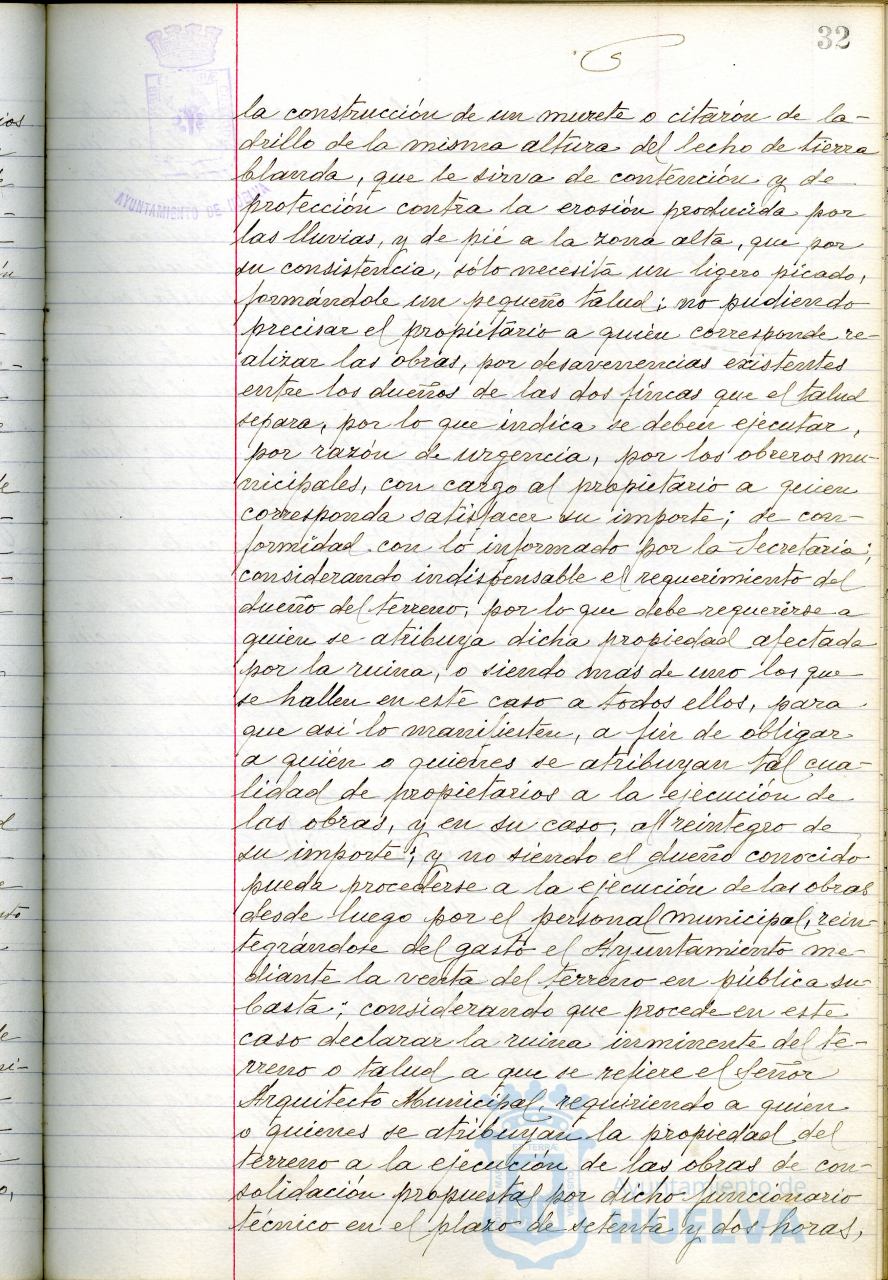 32
AYUNTAMIENTO DE HUELVA
la construcción de un murete o citarón de la-
drillo de la misma altura del lecho de tierra
blanda, que le sirva de contención y de
protección contra la erosión producida por
las lluvias, y de pié a la zona alta, que por
su consistencia, sólo necesita un ligero picado,
formándole un pequeño talud; no pudiendo
precisar el propietario a quien corresponde re-
alizar las obras, por desavenencias existentes
entre los dueños de las dos fincas que el talud
separa, por lo que indica se deben ejecutar,
por razón de urgencia, por los obreros mu-
nicipales, con cargo al propietario a quien
corresponda satisfacer su importe; de con-
formidad con lo informado por la Secretaría;
considerando indispensable el requerimiento del
dueño del terreno, por lo que debe requerirse a
quien se atribuya dicha propiedad afectada
por la ruina, o siendo mas de uno los que
se hallen en este caso a todos ellos, para
que así lo manifiesten, a fin de obligar
a quién o quienes se atribuyan tal cua-
lidad de propietarios a la ejecución de
las obras, y en su caso, al reintegro de
su importe; y no siendo el dueño conocido
pueda procederse a la ejecución de las obras
desde luego por el personal municipal, rein-
tegrándose del gasto el Ayuntamiento me-
diante la venta del terreno en pública su-
basta; considerando que procede en este
caso declarar la ruina inminente del te-
rreno o talud a que se refiere el Señor
Arquitecto Municipal, requiriendo a quien
o quienes se atribuyan la propiedad del
terreno a la ejecución de las obras de con-
solidación propuestas por dicho funcionario
técnico en el plazo de setenta y dos horas,
Ayuntamiento de
HUELVA